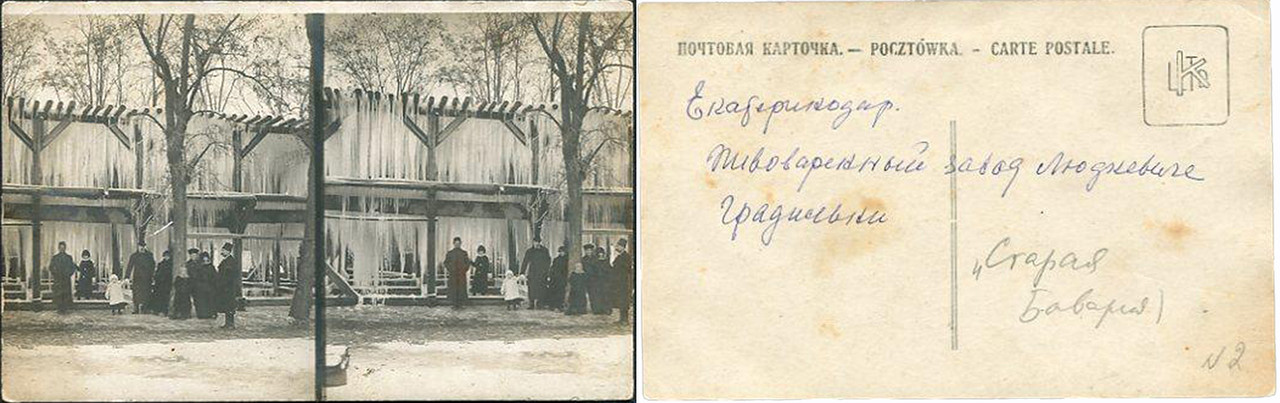 ПОЧТОВАЯ КАРТОЧКА. — POCZTÓWKA. - CARTE POSTALE.
Екатеринодар.
Пивоваренный завод Людкевича
Градильни
„Старая
Бавария)
N 2